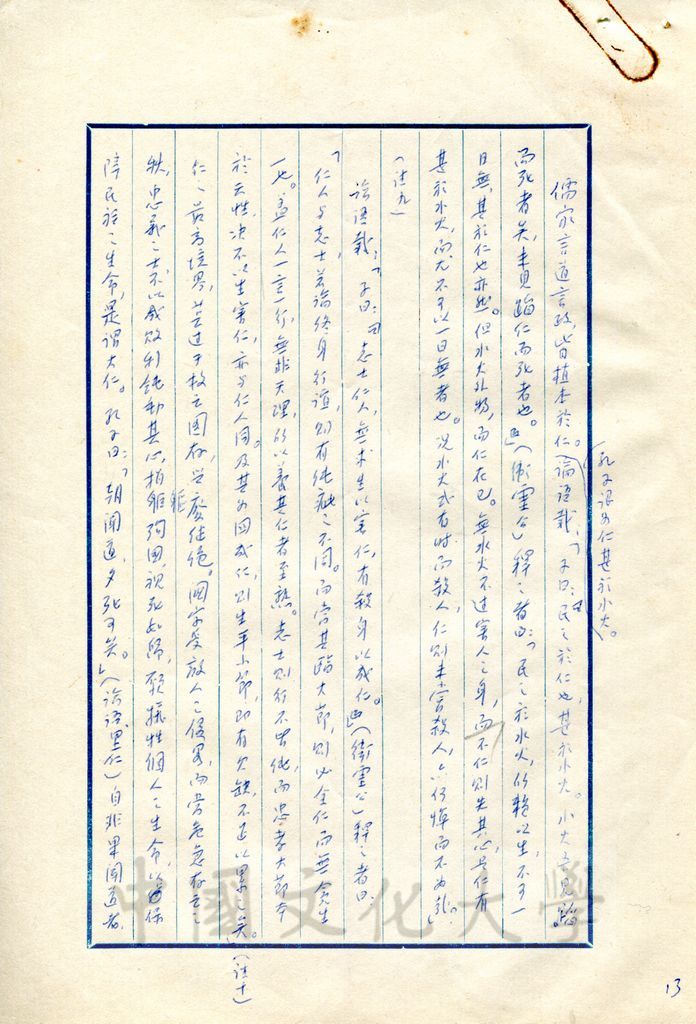 孔子認為仁甚於水火。
儒家言道言政,皆植本於仁。論語載:「子曰:民之於仁也,甚於水火。水火吾見蹈
而死者矣,未見蹈仁而死者也。」(衛靈公)釋之者曰:「民之於水火,所賴以生,不可一
日無,其於仁也亦然。但水火外物,而仁在己。無水火不過害人之身,而不仁則失其心,是仁有
甚於水火,而尤不可以一日無者也。況水火或有時而殺人,仁則未嘗殺人,人何憚而不為哉。」
(註九)
論語載:「子曰:志士仁人,無求生以害仁,有殺身以成仁。」(衛靈公)釋之者曰:
「仁人與志士,若論終身行誼,則有純疵之不同。而當其臨大節,則必全仁而無貪生
一也。蓋仁人一言一行,無非天理,所以養其仁者至熟。志士則行不皆純,而忠孝大節本
於天性,決不以生害仁,亦與仁人同。及其為國成仁,則生平小節,即有欠缺,不足以累之矣。」(註十)
仁之最高境界,莫過于救亡圖存,興廢繼絕。國家受敵人之侵略,而當危急存亡之
秋,忠義之士,不以成敗利鈍動其心,捐軀殉國,視死如歸,願犧牲個人之生命,以確保
障民族之生命,是謂大仁。孔子曰:「朝聞道,夕死可矣。」(論語里仁)自非果聞道者,
13
中國文化大學